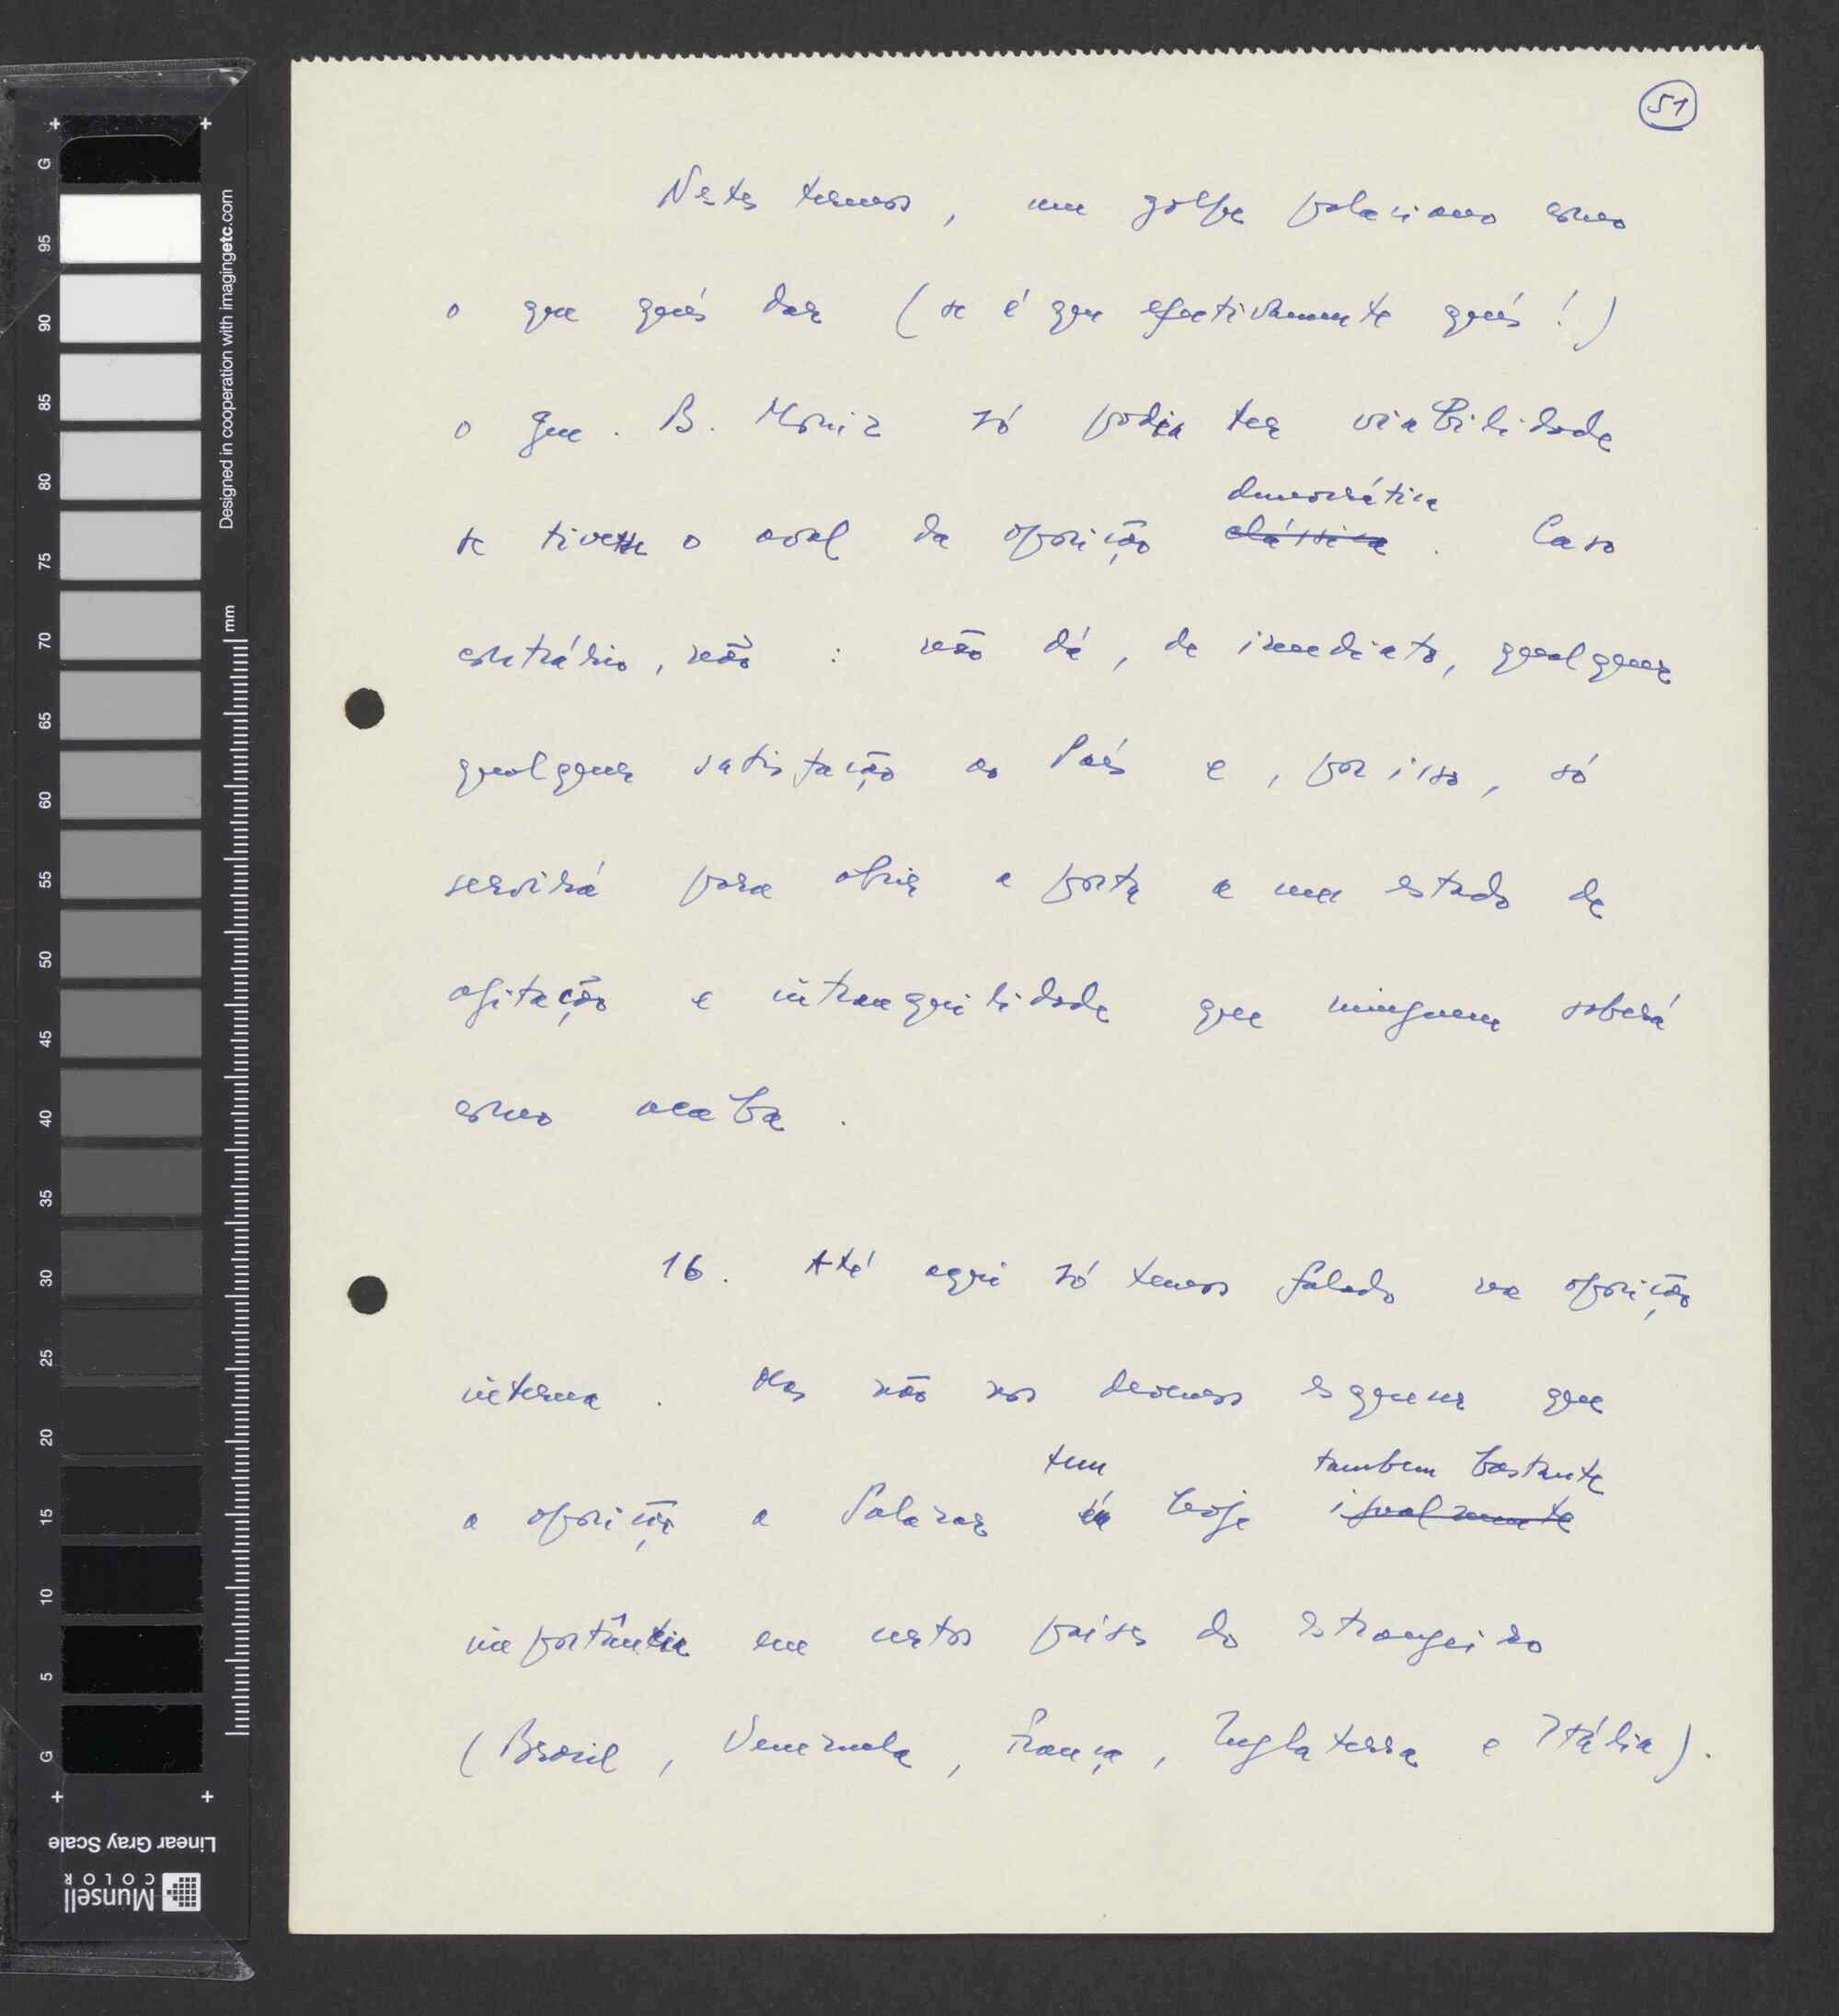 51
Nestes termos, um golpe palaciano como
o que quis dar (se é que efectivamente quis!)
o Gen. B. Moniz só podia ter viabilidade
democrática
se tivesse o aval da oposição clássica. Caso
contrário, não: não dá, de imediato, qualquer
qualquer satisfação ao País e, por isso, só
servirá para abrir a porta a um estado de
agitação e intranquilidade que ninguem saberá
como acaba.
16. Até aqui só temos falado na oposição
interna. Mas não nos devemos esquecer que
tem também bastante
a oposição a Salazar hoje igualmente
importância em certos países do estrangeiro
(Brasil, Venezuela, França, Inglaterra e Itália).
G 95 90 85 80 75 70 65 60 55 50 45 40 35 30 25 20 15 10 5 G
Designed in cooperation with imagingetc.com
mm
Linear Gray Scale
Munsell
COLOR